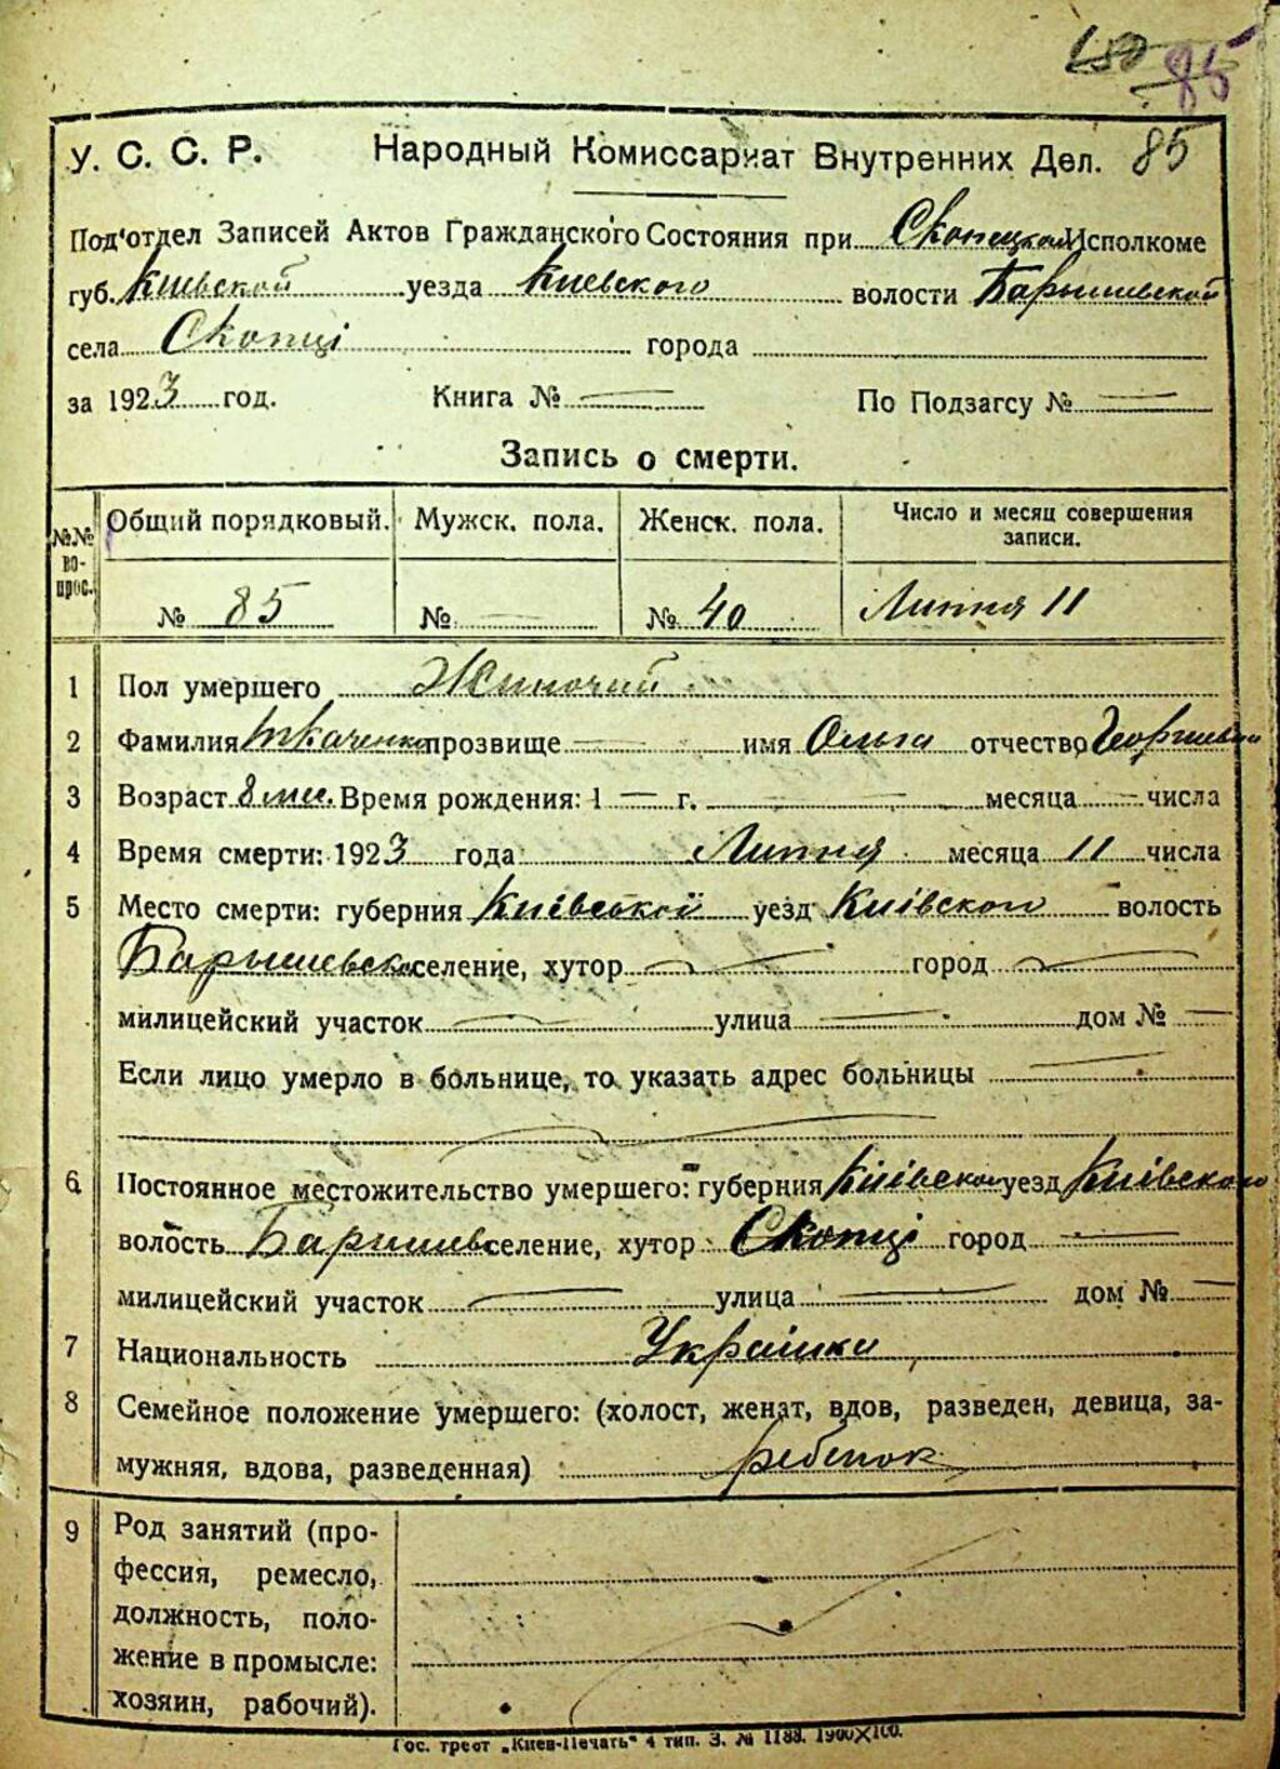 85
85
У. С. С. Р. Народный Комиссариат Внутренних Дел.
Под'отдел Записей Актов Гражданского Состояния при Скопецком Исполкоме
губ. Киевской уезда Киевского волости Барышевской
села Скопці города
за 1923 год. Книга № — По Подзагсу № —
Запись о смерти.
№№ вопрос. Общий порядковый. Мужск. пола. Женск. пола. Число и месяц совершения записи.
№ 85 № — № 40 Липня 11
1 Пол умершего Жиночий
2 Фамилия Ткаченко прозвище — имя Ольга отчество Георгиевна
3 Возраст 8 мес. Время рождения: 1 — г. — месяца — числа
4 Время смерти: 1923 года Липня месяца 11 числа
5 Место смерти: губерния Київської уезд Київского волость
Барышевско селение, хутор — город —
милицейский участок — улица — дом № —
Если лицо умерло в больнице, то указать адрес больницы —
6 Постоянное местожительство умершего: губерния Київской уезд Київского
волость Барышев селение, хутор Скопці город —
милицейский участок — улица — дом № —
7 Национальность Украінка
8 Семейное положение умершего: (холост, женат, вдов, разведен, девица, за-
мужняя, вдова, разведенная) ребенок
9 Род занятий (про-
фессия, ремесло,
должность, поло-
жение в промысле:
хозяин, рабочий).
Гос. трест „Киев-Печать" 4 тип. З. № 1188. 1900Х100.